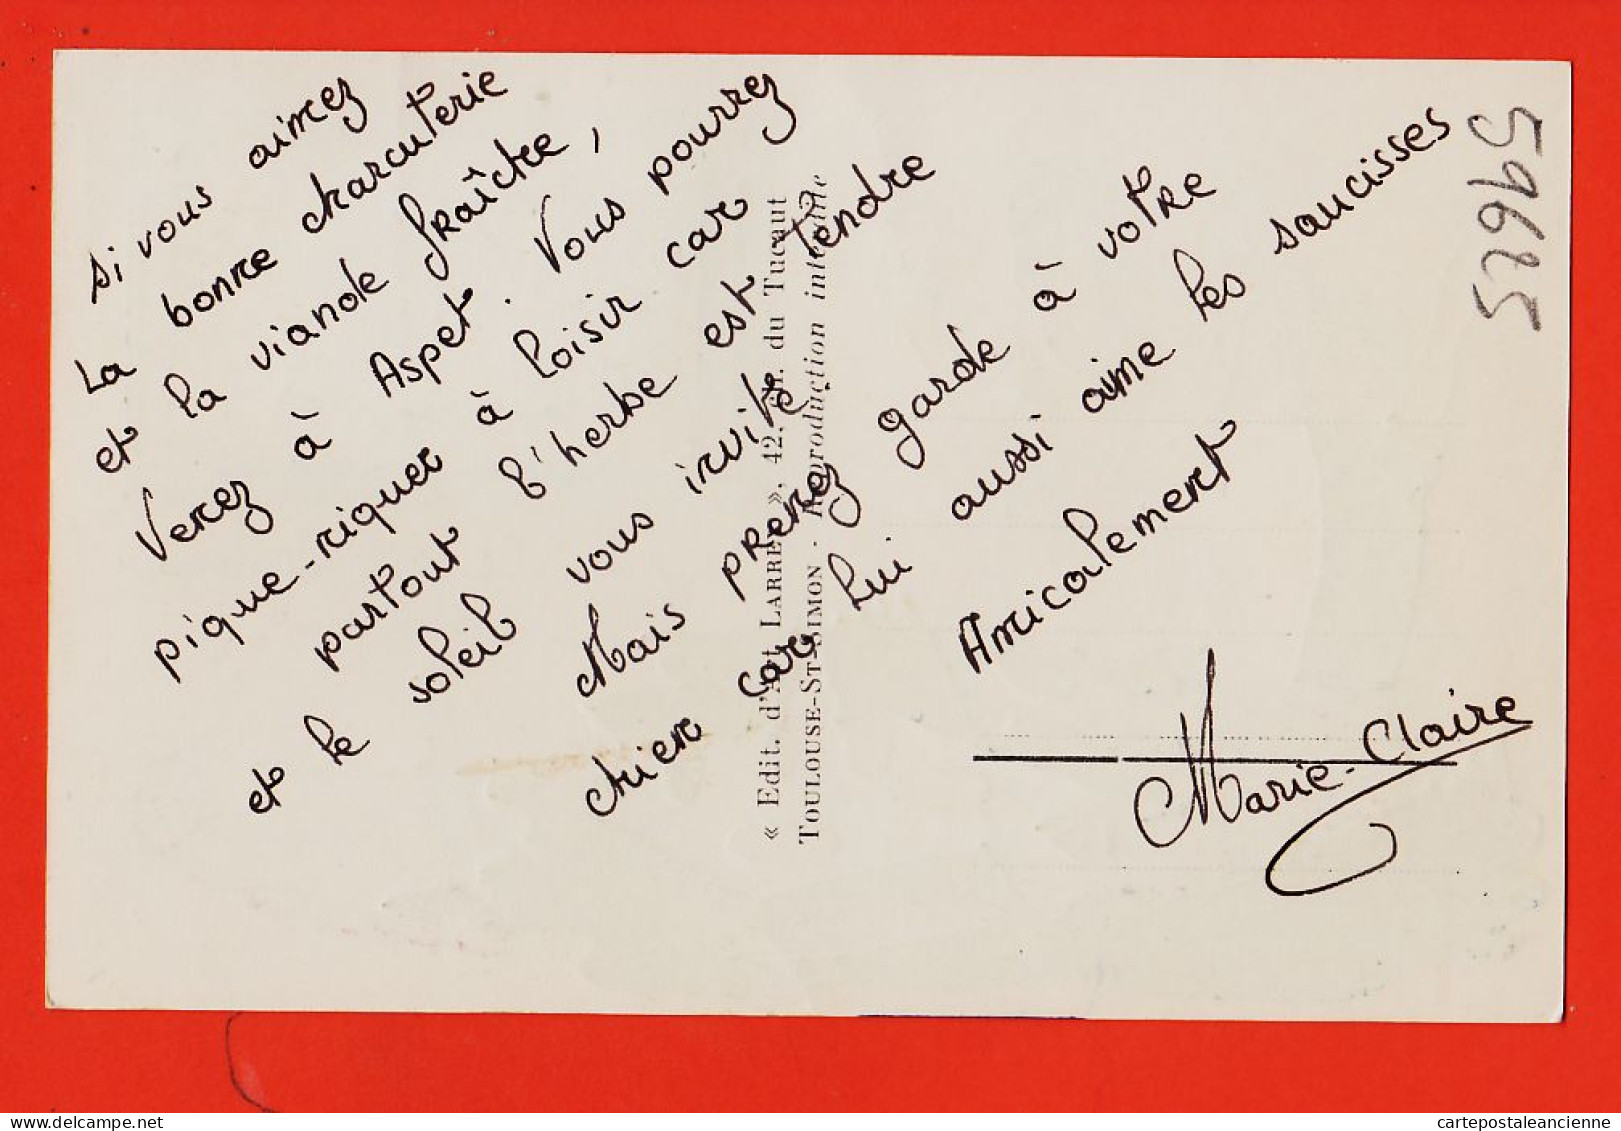 si vous aimez
la bonne charcuterie
et la viande fraîche,
Venez à Aspet. Vous pourrez
pique-niquer à loisir car
partout l'herbe est tendre
et le soleil vous invite
Mais prenez garde à votre
chien car lui aussi aime les saucisses
Amicalement
Marie-Claire
59625
« Edit. d'Art LARREY », 42,
du Tucaut
TOULOUSE-ST-SIMON - Reproduction interdite
cartepostaleancienne